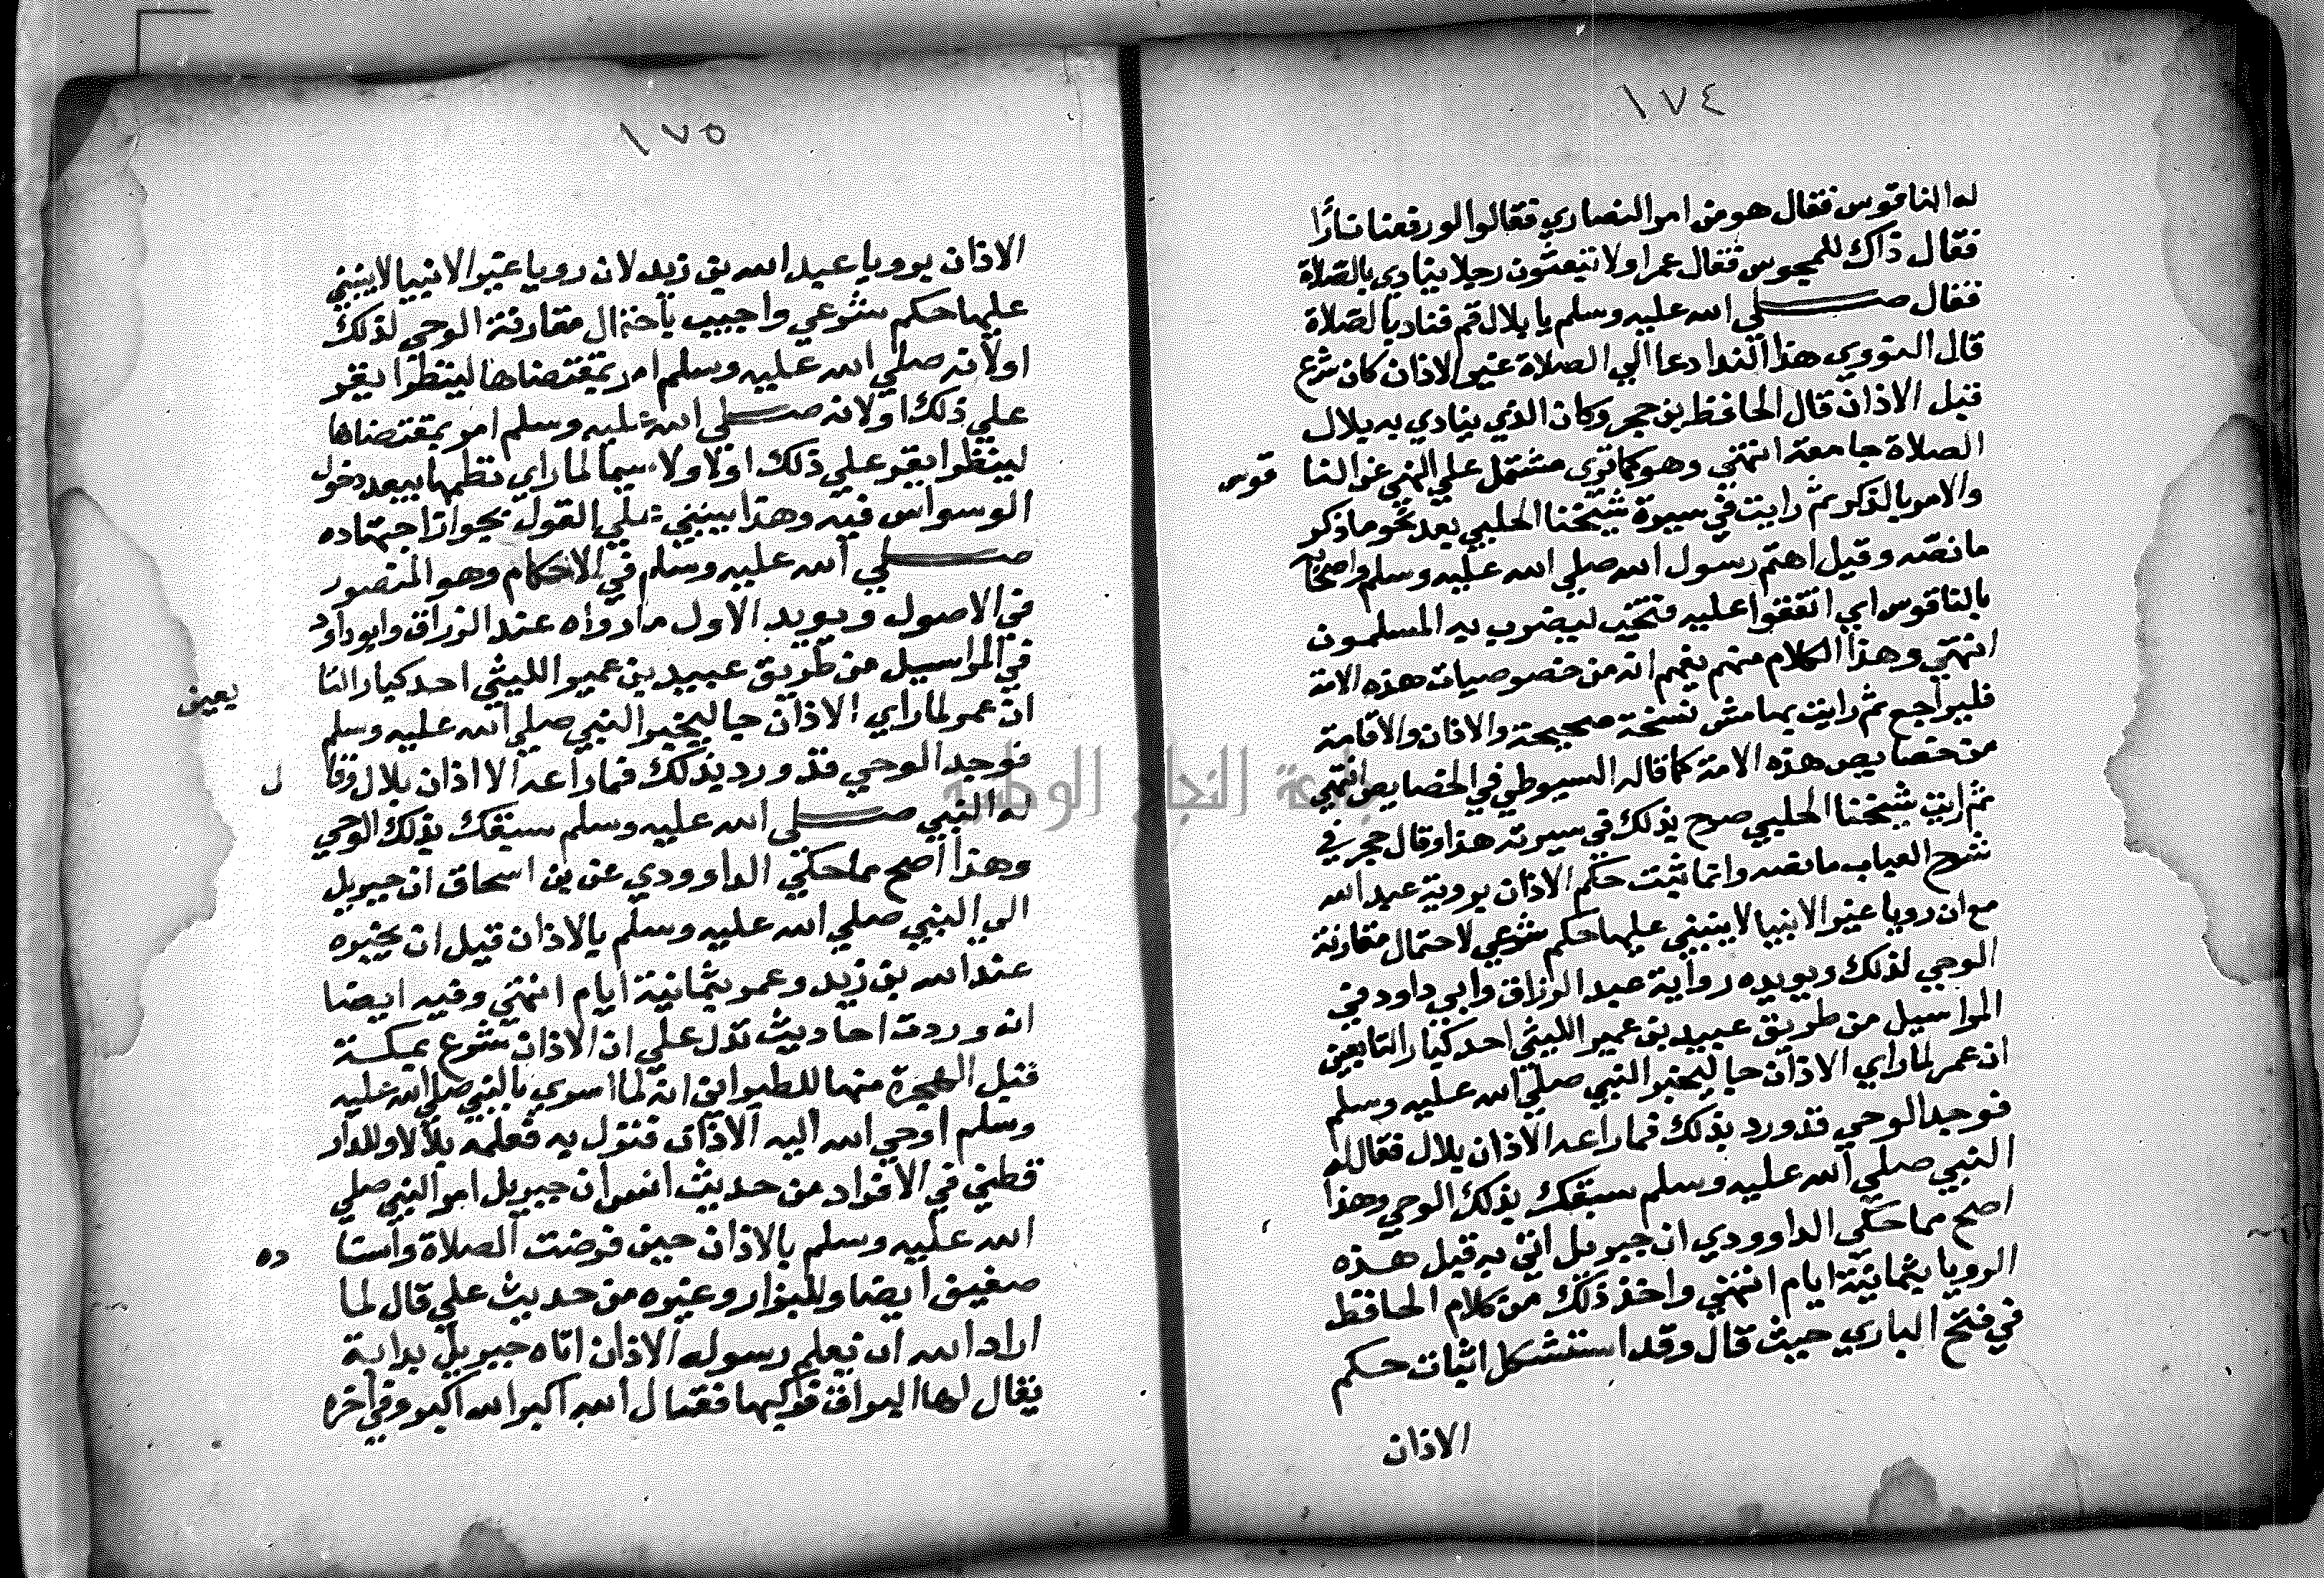 ١٧٤
له الناقوس فقال هو من امر النصاري فقالوا لو رفعنا نارًا
فقال ذاك للمجوس فقال عمر اولا تبعثون رجلا ينادي بالصلاة
فقال صلي الله عليه وسلم يا بلال قم فناد بالصلاة
قال النووي هذا الندا دعا الي الصلاة غير الاذان كان شرع
قبل الاذان قال الحافظ بن حجر وكان الذي ينادي به بلال
الصلاة جامعة انتهي وهو كما تري مشتمل علي النهي عن النا قوس
والامر بالذكر ثم رايت في سيرة شيخنا الحلبي بعد نحو ما ذكر
ما نصه وقيل اهتم رسول الله صلي الله عليه وسلم واصحابه
بالناقوس اي اتفقوا عليه فنحت ليضرب به المسلمون
انتهي وهذا الكلام منهم يفهم انه من خصوصيات هذه الامة
فليراجع ثم رايت بهامش نسخة صحيحة والاذان والاقامة
من خصايص هذه الامة كما قاله السيوطي في الخصايص انتهي
ثم رايت شيخنا الحلبي صرح بذلك في سيرته هذا وقال حجر في
شرح العباب ما نصه وانما ثبت حكم الاذان بروية عبد الله
مع ان رويا غير الانبيا لا ينبني عليها حكم شرعي لاحتمال مقارنة
الوحي لذلك ويويده رواية عبد الرزاق وابي داود في
المراسيل من طريق عبيد بن عمير الليثي احد كبار التابعين
ان عمر لما راي الاذان جا ليخبر النبي صلي الله عليه وسلم
فوجد الوحي قد ورد بذلك فما راعه الا اذان بلال فقال له
النبي صلي الله عليه وسلم سبقك بذلك الوحي وهذا
اصح مما حكي الداوودي ان جبريل اتي به قبل هذه
الرويا بثمانية ايام انتهي واخذ ذلك من كلام الحافظ
في فتح الباري حيث قال وقد استشكل اثبات حكم
الاذان
١٧٥
الاذان برويا عبد الله بن زيد لان رويا غير الانبيا لا ينبني
عليها حكم شرعي واجيب باحتمال مقارنة الوحي لذلك
اولانه صلي الله عليه وسلم امر بمقتضاها لينظر ايقر
علي ذلك اولانه صلي الله عليه وسلم امر بمقتضاها
لينظر ايقر علي ذلك اولا ولا سيما لما راي نظمها يبعد دخول
الوسواس فيه وهذا ينبني علي القول بجواز اجتهاده
صلي الله عليه وسلم في الاحكام وهو المنصور
في الاصول ويويد الاول ما رواه عبد الرزاق وابو داود
في المراسيل من طريق عبيد بن عمير الليثي احد كبار التا بعين
ان عمر لما راي الاذان جا ليخبر النبي صلي الله عليه وسلم
فوجد الوحي قد ورد بذلك فما راعه الا اذان بلال وقا ل
له النبي صلي الله عليه وسلم سبقك بذلك الوحي
وهذا اصح مما حكي الداوودي عن بن اسحاق ان جبريل
الي النبي صلي الله عليه وسلم بالاذان قبل ان يخبره
عبد الله بن زيد وعمر بثمانية ايام انتهي وفيه ايضا
انه وردت احاديث تدل علي ان الاذان شرع بمكة
قبل الهجرة منها للطبراني انه لما اسري بالنبي صلي الله عليه
وسلم اوحي الله اليه الاذان فنزل به فعلمه بلالا وللدار
قطني في الافراد من حديث انس ان جبريل امر النبي صلي
الله عليه وسلم بالاذان حين فرضت الصلاة واسنا ده
ضعيف ايضا وللبزار وغيره من حديث علي قال لما
اراد الله ان يعلم رسوله الاذان اتاه جبريل بدابة
يقال لها البراق فركبها فقال الله اكبر الله اكبر وفي اخره